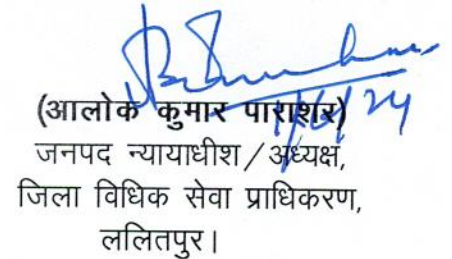 (आलोक कुमार पाराशर)
जनपद न्यायाधीश/अध्यक्ष,
जिला विधिक सेवा प्राधिकरण,
ललितपुर।